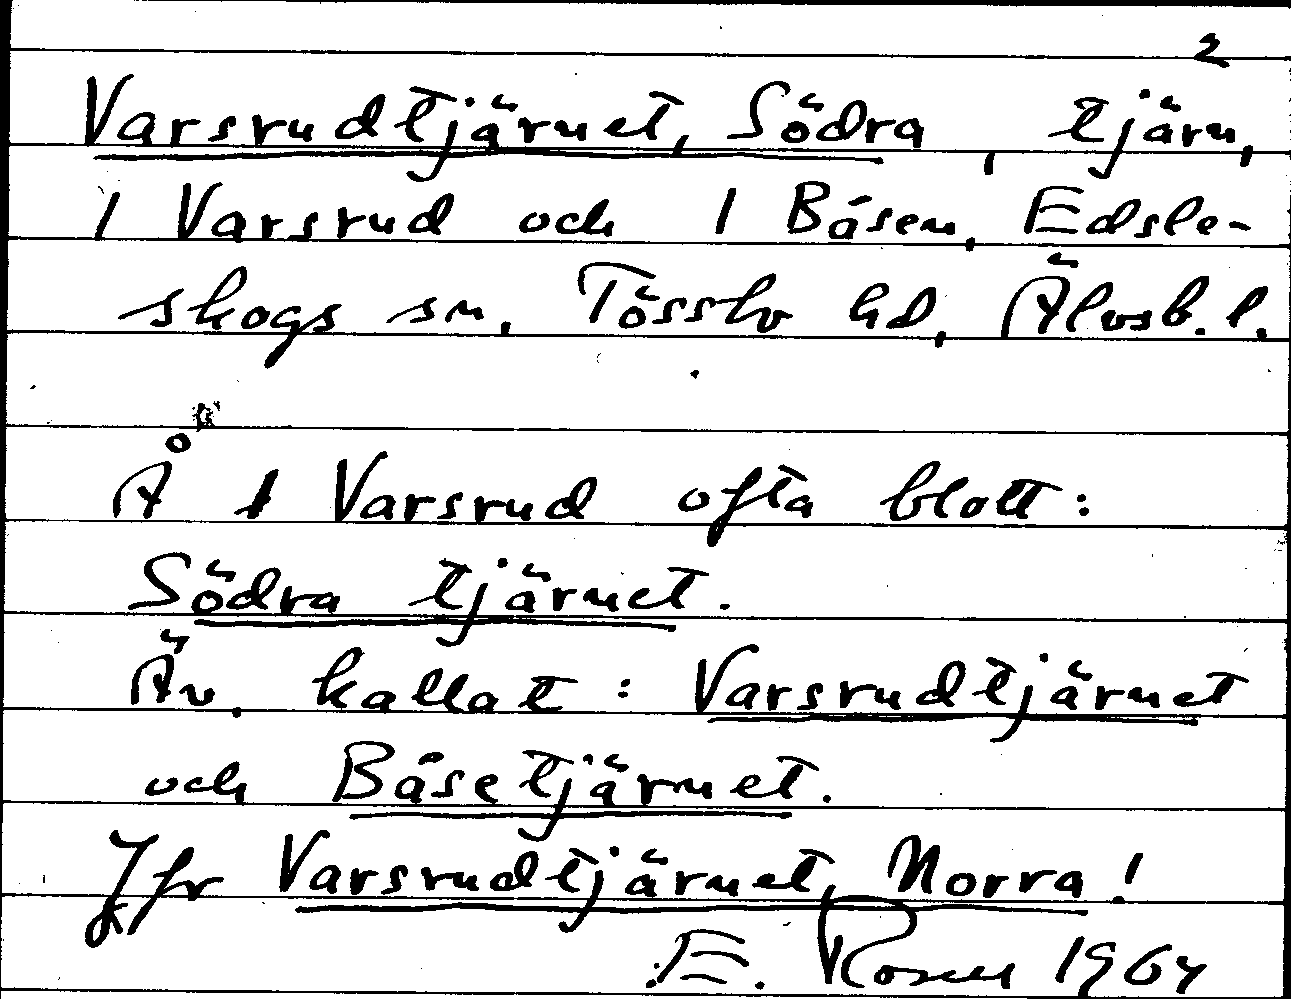 2
Varsrudtjärnet, Södra, tjärn,
1 Varsrud och 1 Båsen, Edsle-
skogs sn, Tössbo hd, Älvsb. l.
Å 1 Varsrud ofta blott:
Södra tjärnet.
Äv. kallat: Varsrudtjärnet
och Båsetjärnet.
Jfr Varsrudtjärnet, Norra!
E. Rosen 1964